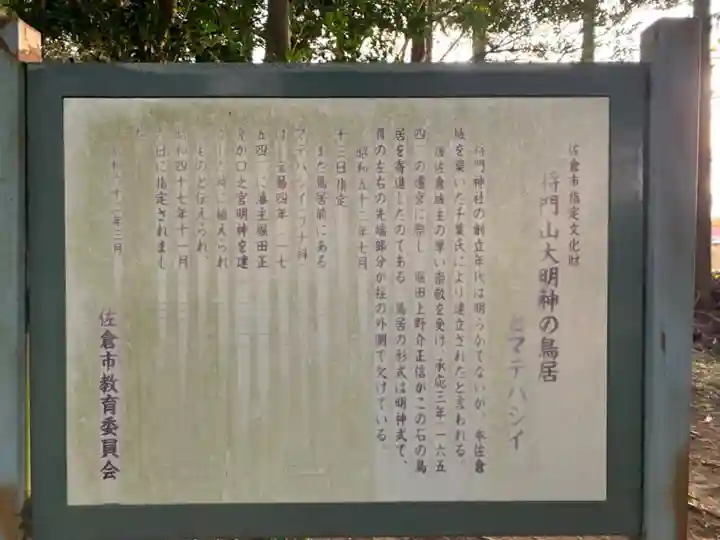 佐倉市指定文化財
将門山大明神の鳥居
とマテバシイ
将門神社の創立年代は明らかでないが、本佐倉
城を築いた千葉氏により建立されたと言われる。
後佐倉城主の厚い崇敬を受け、承応三年(一六五
四)の遷宮に際し、堀田上野介正信がこの石の鳥
居を寄進したのである。鳥居の形式は明神式で、
貫の左右の先端部分が柱の外側で欠けている。
昭和五十二年七月
十三日指定
また鳥居前にある
マテバシイ(ブナ科)
は、宝暦四年(一七
五四)に藩主堀田正
が口之宮明神を建
時に植えられ
ものと伝えられ、
昭和四十七年十一月
日に指定されまし
た
十二年三月
佐倉市教育委員会